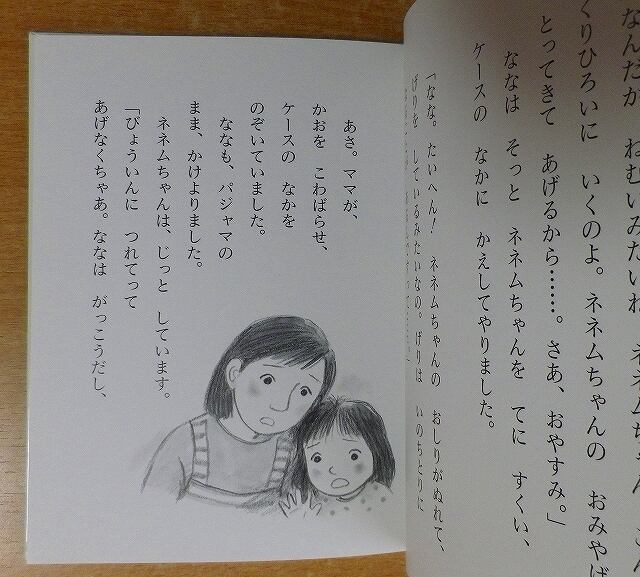 なんだか ねむいみたいね ネネムちゃん
くりひろいに いくのよ。ネネムちゃんの おみやげ
とってきて あげるから……。さあ、おやすみ。」
ななは そっと ネネムちゃんを てに すくい、
ケースの なかに かえしてやりました。
「なな。たいへん! ネネムちゃんの おしりがぬれて、
げりを しているみたいなの。げりは いのちとりに
あさ。ママが、
かおを こわばらせ、
ケースの なかを
のぞいていました。
ななも、パジャマの
まま、かけよりました。
ネネムちゃんは、じっと しています。
「びょういんに つれてって
あげなくちゃあ。ななは がっこうだし、